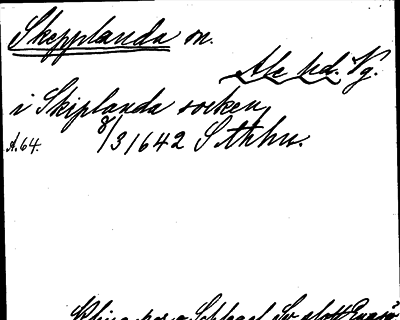 Skepplanda sn.
Ale hd. Vg.
i Skiplanda socken
A.64. 8/3 1642 Sthhn.